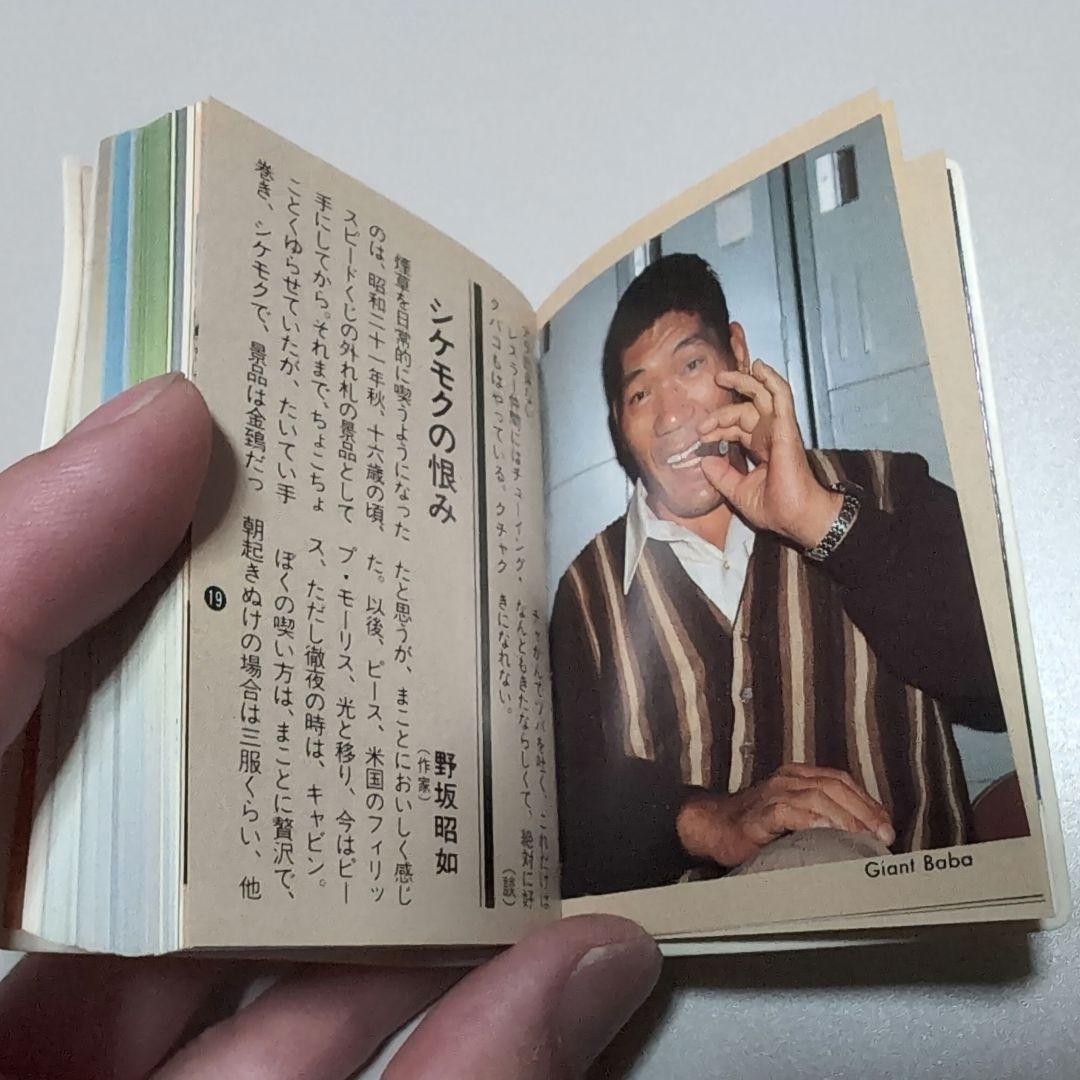 レスラー仲間にはチューイング・
タバコもはやっている。クチャク
チャかんでツバを吐く、これだけは
なんともきたならしくて、絶対に好
きになれない。
(談)
シケモクの恨み
野坂昭如
(作家)
煙草を日常的に喫うようになった
のは、昭和二十一年秋、十六歳の頃、
スピードくじの外れ札の景品として
手にしてから。それまで、ちょこちょ
ことくゆらせていたが、たいてい手
巻き、シケモクで、景品は金鵄だっ
たと思うが、まことにおいしく感じ
た。以後、ピース、米国のフィリッ
プ・モーリス、光と移り、今はピー
ス、ただし徹夜の時は、キャビン。
ぼくの喫い方は、まことに贅沢で、
朝起きぬけの場合は三服くらい、他
19
Giant Baba